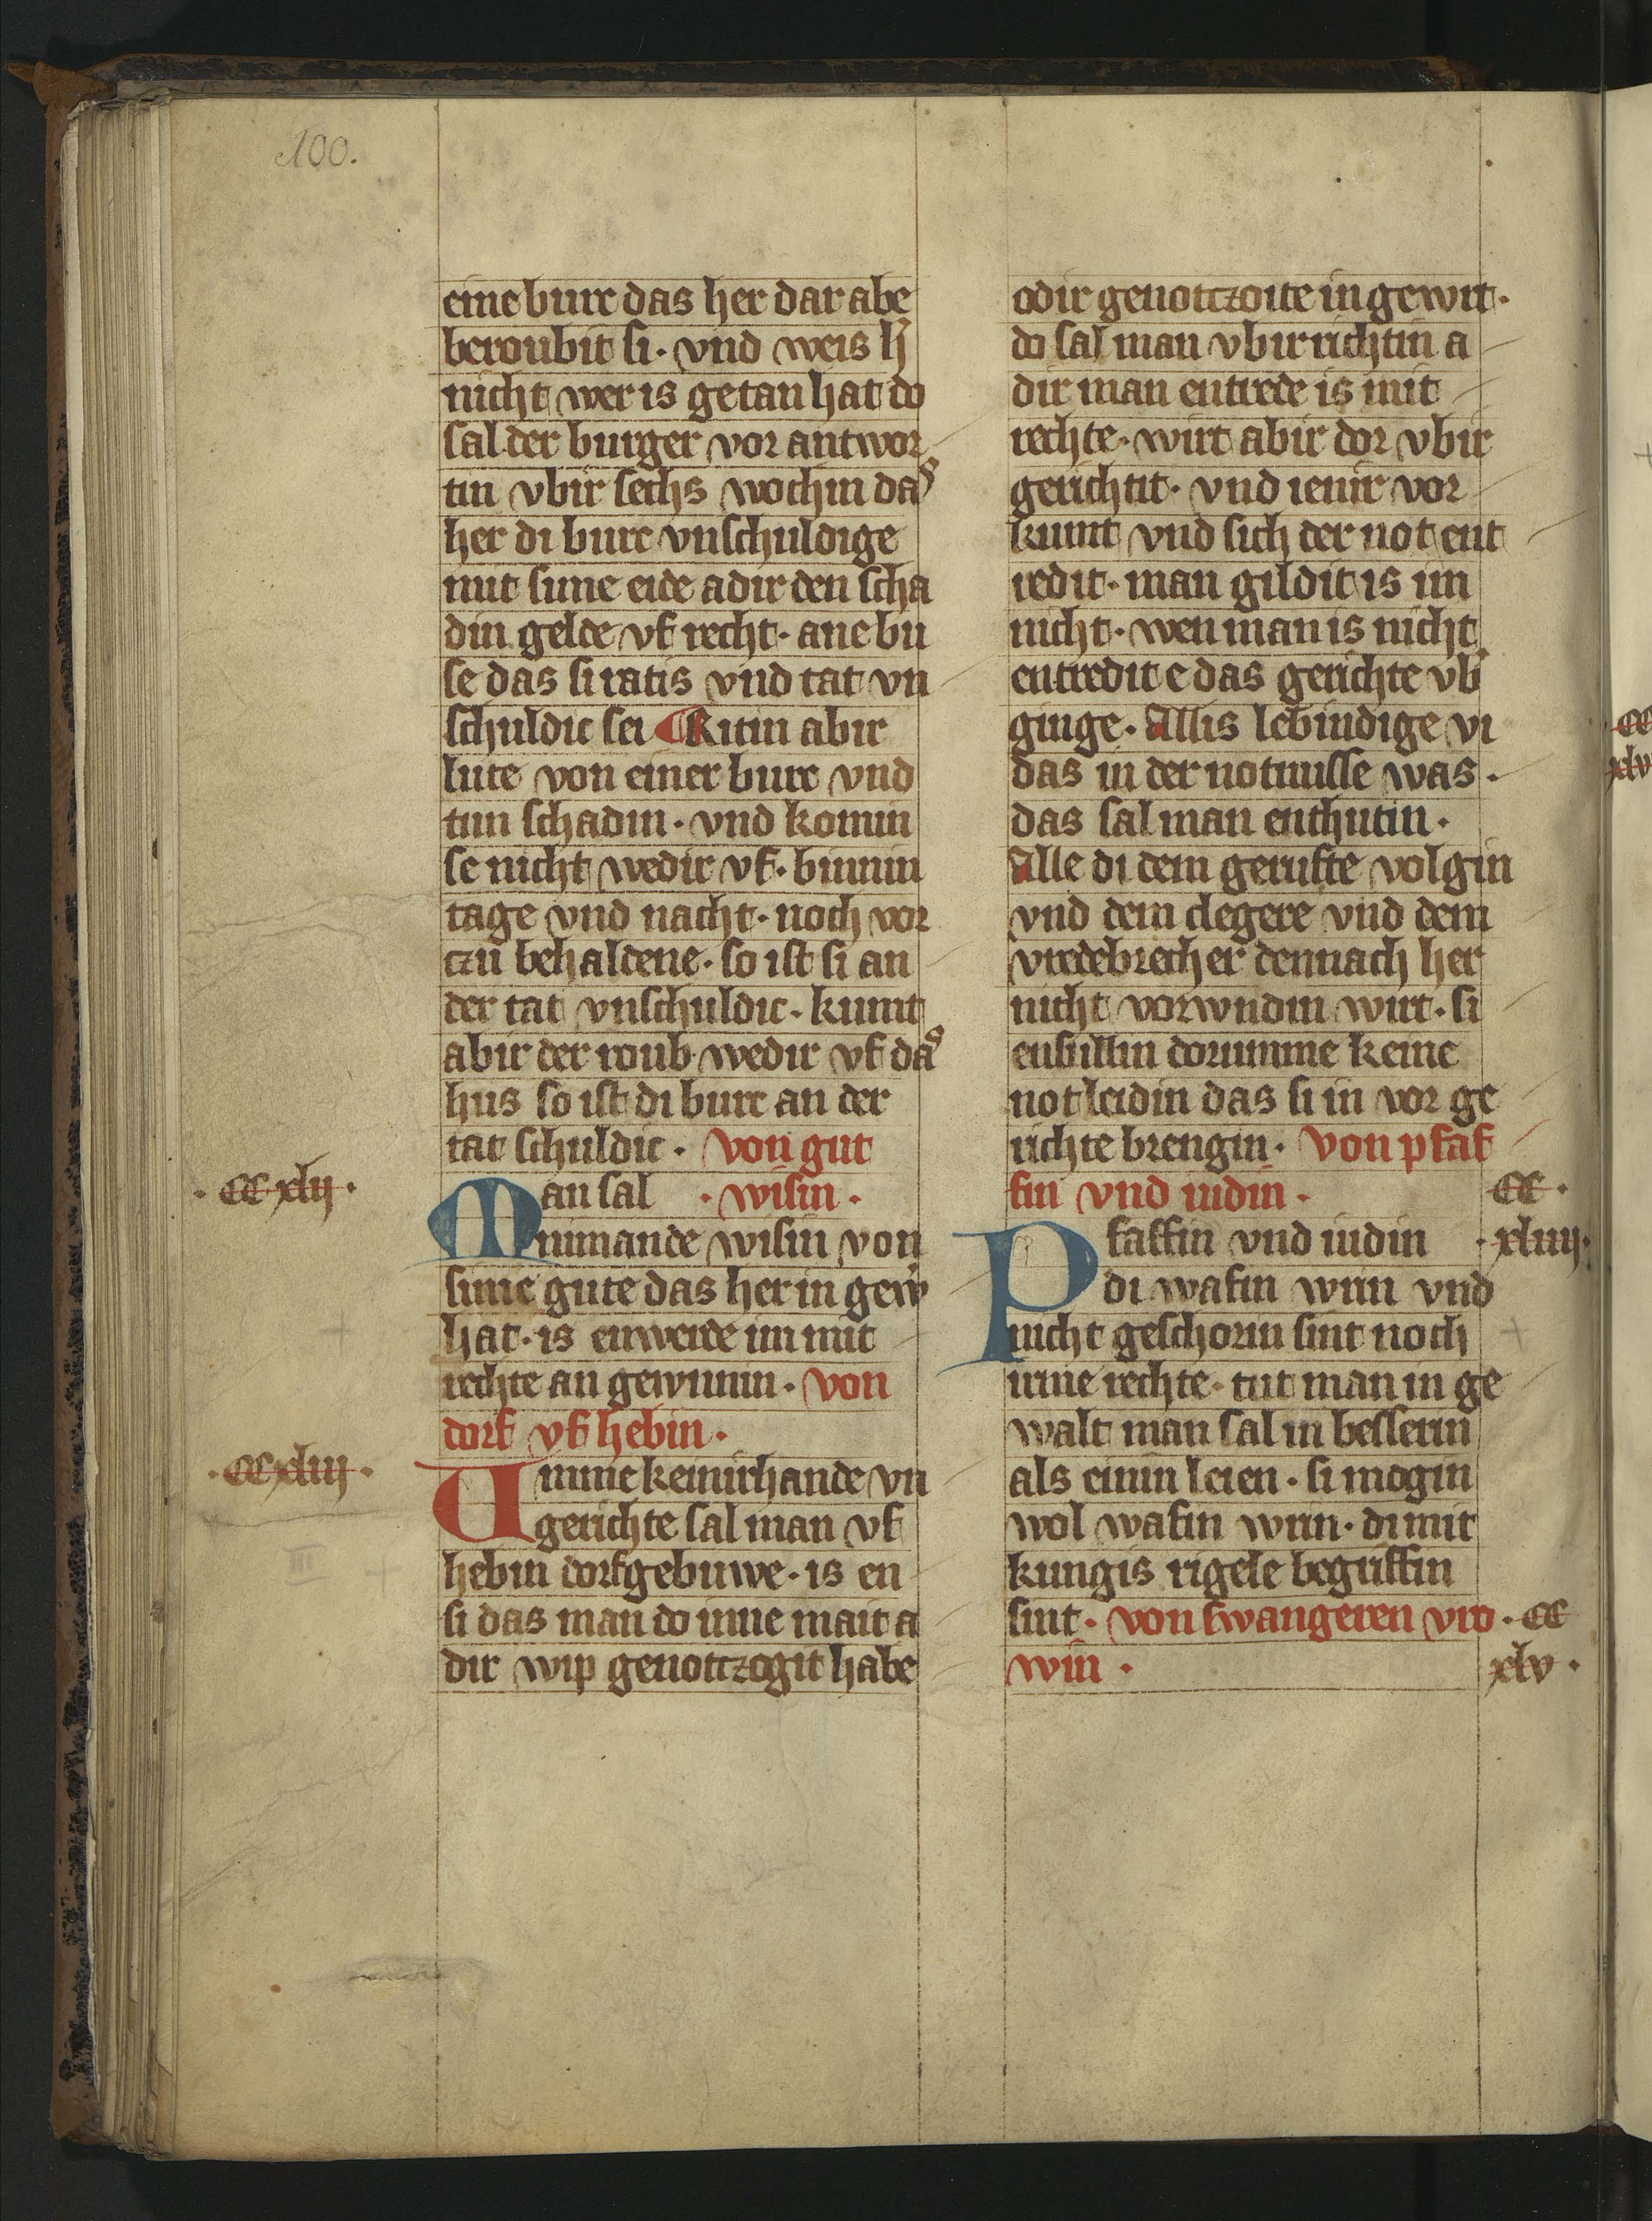 100.
eine burc das her dar abe
beroubit si· vnd weis h̄
nicht wer is getan hat do
sal der burger vor antwor
tin vbir sechs wochin das
her di burc vnschuldige
mit sime eide adir den scha
din gelde vf recht· ane bu
se das si ratis vnd tat vn
schuldic sei Ritin abir
lute von einer burc vnd
tun schadin· vnd komin
se nicht wedir vf· binnin
tage vnd nacht· noch vor
czu behaldene· so ist si an
der tat vnschuldic· kumt
abir der roub wedir vf das
hus so ist di burc an der
tat schuldic· von gut
·CCxlij·
Man sal ·wisin·
nimande wisin von
sime gute das her in gew̕
hat· is enwerde im mit
rechte an gewunnin· von
dorf vf hebin·
·CCxliij·
Vmme keinirhande vn
gerichte sal man vf
hebin dorfgebuwe· is en
si das man do inne mait a
dir wip genotczogit habe
odir genotczoite in gewrt·
do sal man vbir richtin a
dir man entrede is mit
rechte· wirt abir dor vbir
gerichtit· vnd ienir vor
kumt vnd sich der not ent
redit· man gildit is im
nicht· wen man is nicht
entredit e das gerichte vb̕
ginge· Allis lebindige vi
das in der notnusse was·
das sal man enthutin·
Alle di dem gerufte volgin
vnd dem clegere vnd dem
vredebrecher dennach her
nicht vorwndin wirt· si
ensullin dorumme keine
not leidin das si in vor ge
richte brengin· von pfaf
fin vnd iudin·
CC·
·xliiij·
Pfaffin vnd iudin
di wafin wrin vnd
nicht geschorin sint noch
irme rechte· tut man in ge
walt man sal in besserin
als einin leien· si mogin
wol wafin wrin· di mit
kungis rigele begriffin
sint· von swangeren vro
win·
·CC
xlv·